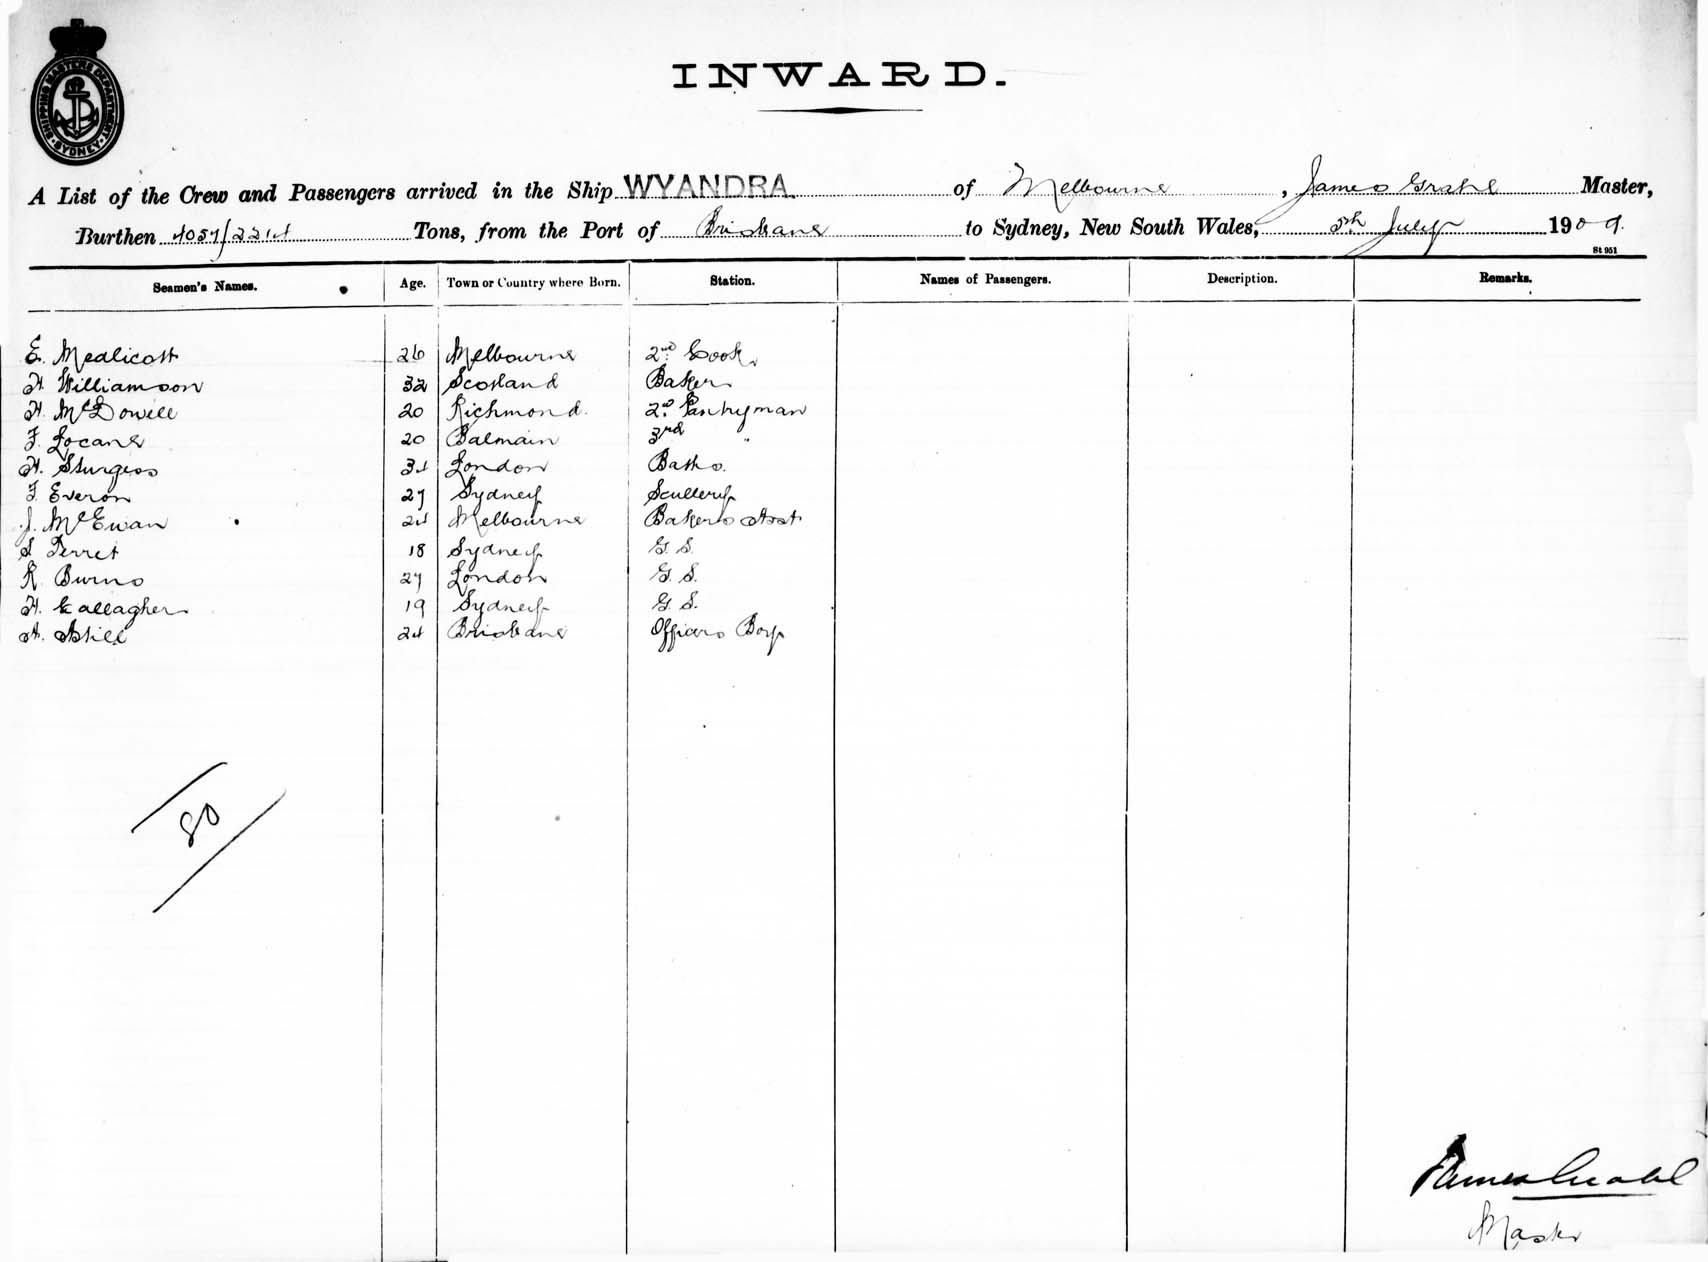 SHIPPING MASTERS DEPARTMENT
SYDNEY
INWARD.
A List of the Crew and Passengers arrived in the Ship WYANDRA of Melbourne, James Grahl Master,
Burthen 4057/2214 Tons, from the Port of Brisbane to Sydney, New South Wales, 5th July 1909.
St 951
Seamen's Names. Age. Town or Country where Born. Station. Names of Passengers. Description. Remarks.
E. Medlicott 26 Melbourne 2nd Cook
H. Williamson 32 Scotland Baker
H. McDowell 20 Richmond. 2nd Pantryman
F. Locane 20 Balmain 3rd "
H. Sturgess 34 London Baths.
F. Everon 27 Sydney Scullery
J. McEwan 24 Melbourne Bakers Asst
S Perret 18 Sydney G. S.
R. Burns 27 London G. S.
H. Gallagher 19 Sydney G. S.
A. Astill 24 Brisbane Officers Boy
80
James Grahl
Master